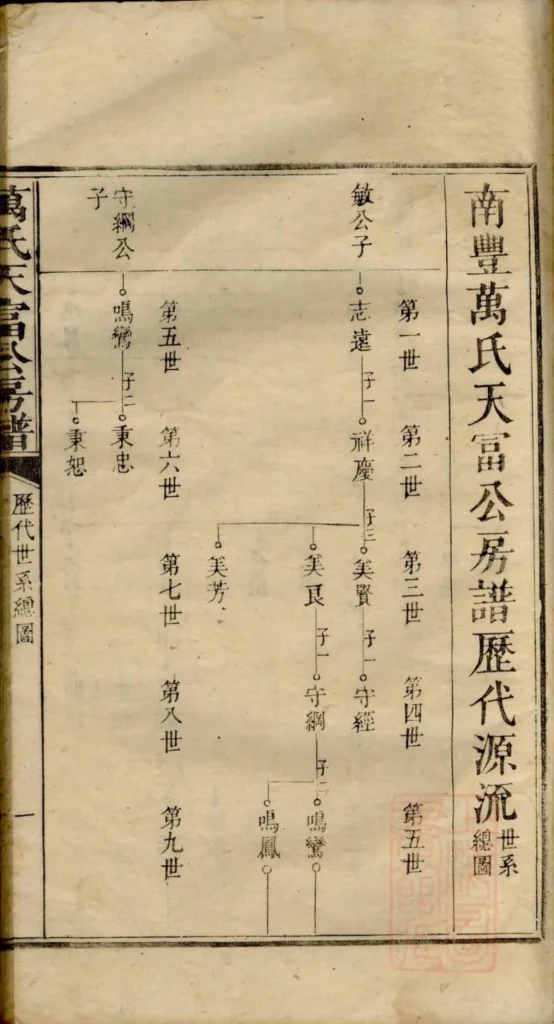 南豐萬氏天冨公房譜歷代源流
世系
總圖
第一世
第二世
第三世
第四世
第五世
敏公子
志遠
子一
祥慶
子三
美賢
子一
守經
美艮
子一
守綱
子二
鳴鸞
鳴鳳
美芳
第五世
第六世
第七世
第八世
第九世
守綱公
子
鳴鸞
子二
秉忠
秉恕
萬氏天富公房譜
歷代世系總圖
一